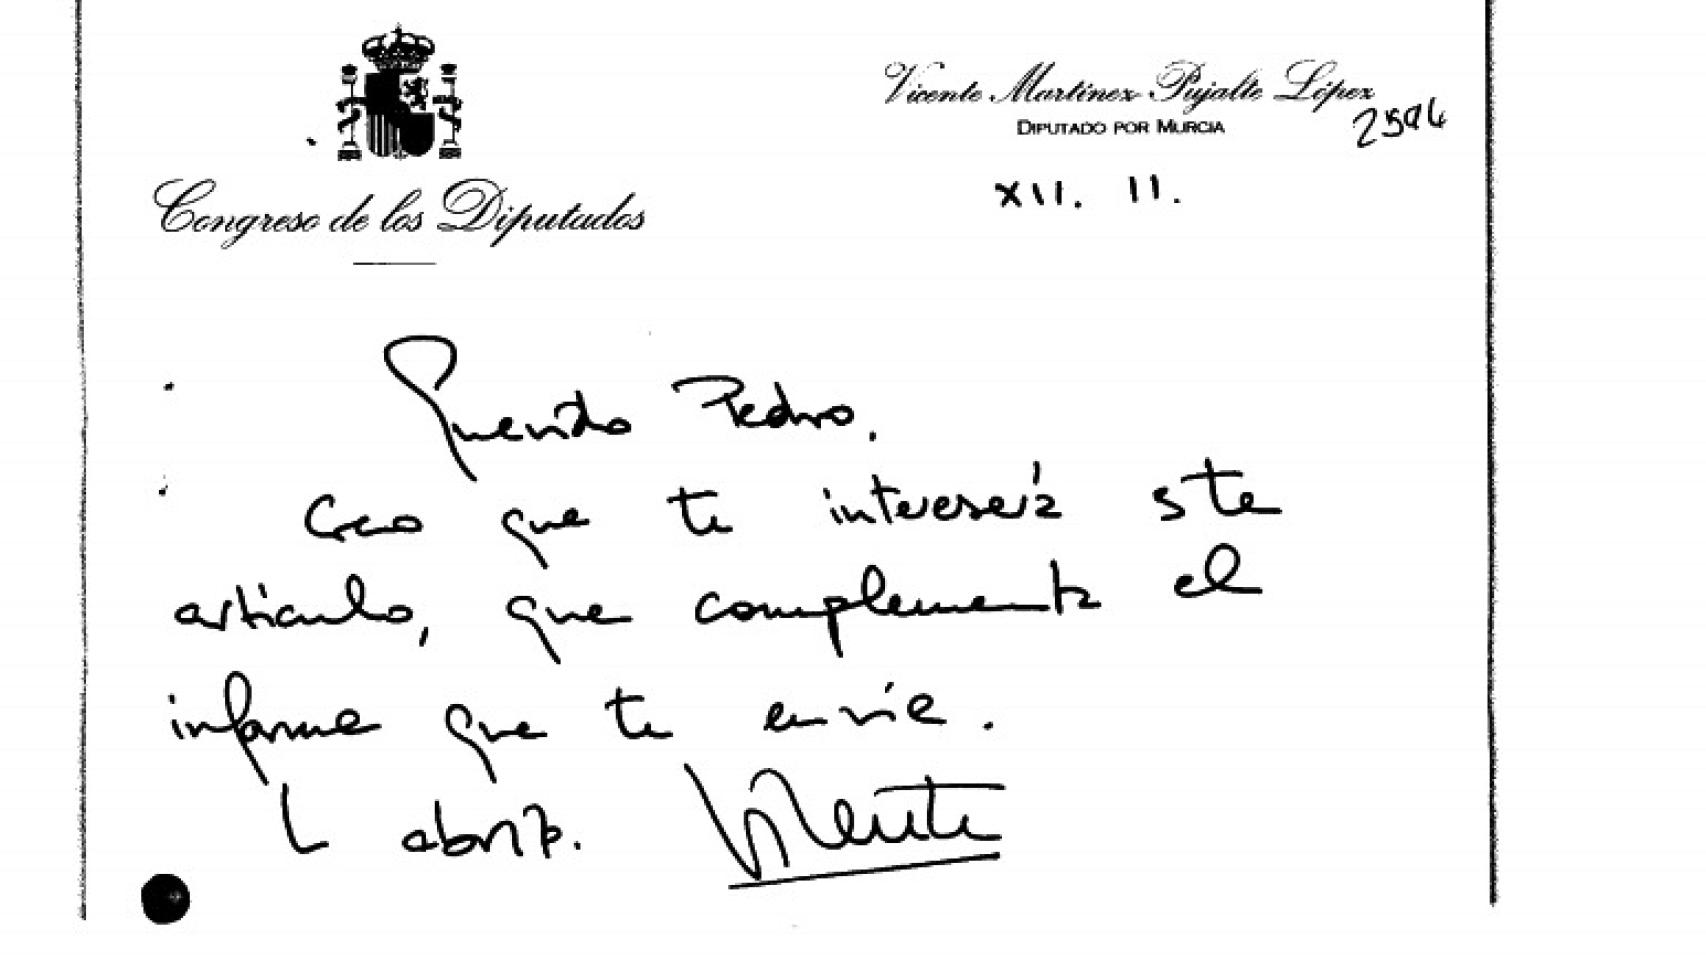 Vicente Martínez-Pujalte López
DIPUTADO POR MURCIA
2594
XII. 11.
Congreso de los Diputados
Querido Pedro,
Creo que te interesará este
artículo, que complementa el
informe que te envié.
abrazo. Vicente